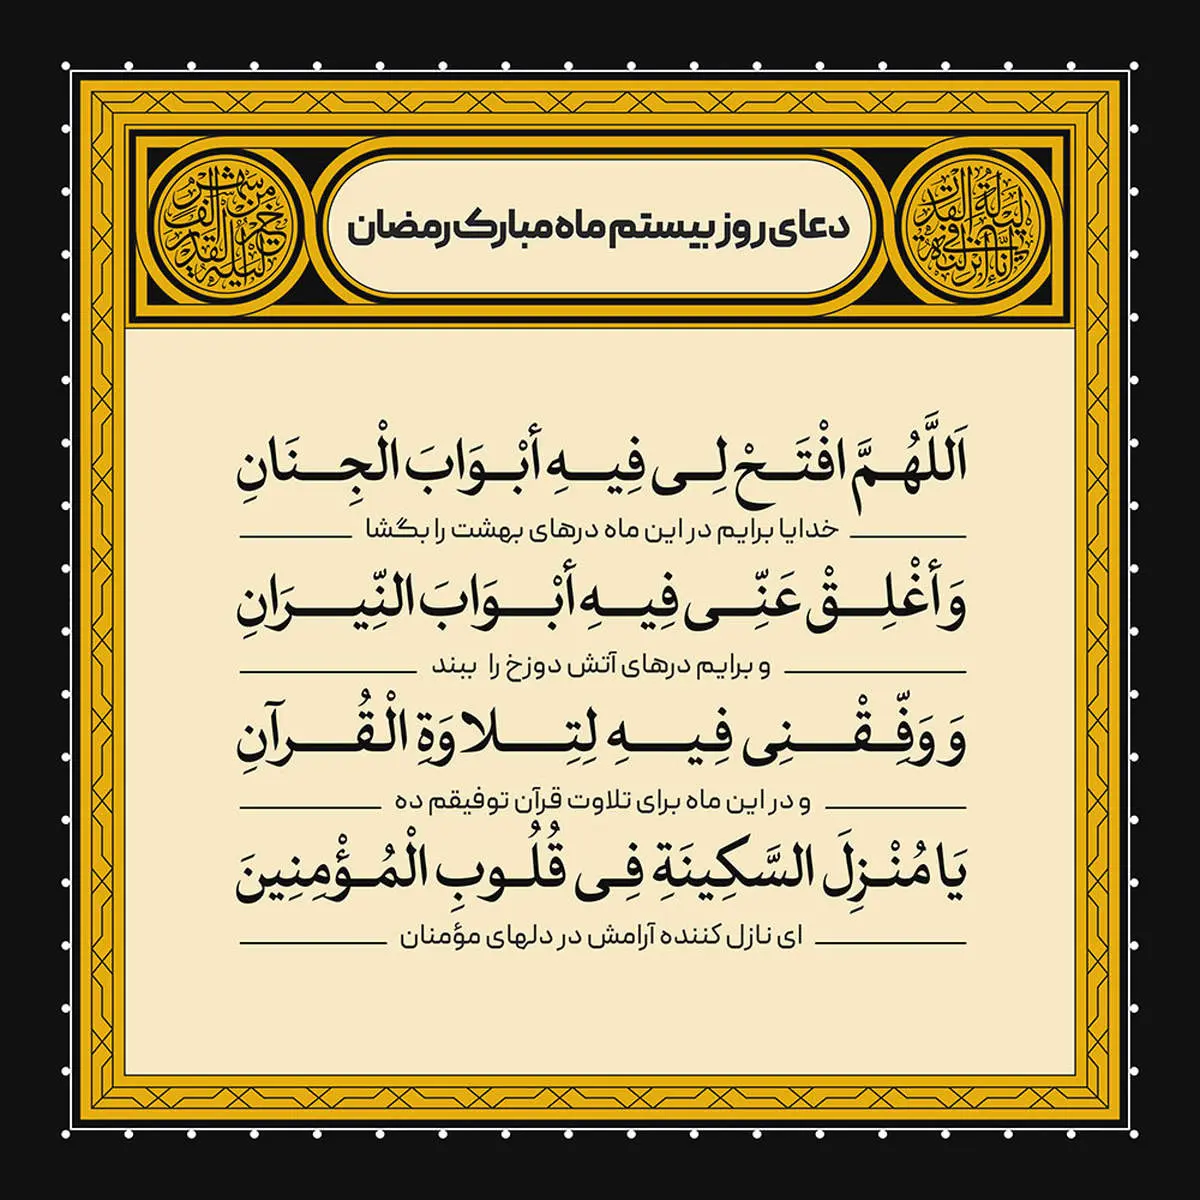 إنا أنزلناه في ليلة القدر
دعای روز بیستم ماه مبارک رمضان
ليلة القدر خير من ألف شهر
اَللَّهُمَّ افْتَحْ لِی فِیهِ أَبْوَابَ الْجِنَانِ
خدایا برایم در این ماه درهای بهشت را بگشا
وَ أَغْلِقْ عَنِّی فِیهِ أَبْوَابَ النِّیرَانِ
و برایم درهای آتش دوزخ را ببند
وَ وَفِّقْنِی فِیهِ لِتِلاوَةِ الْقُرآنِ
و در این ماه برای تلاوت قرآن توفیقم ده
یَا مُنْزِلَ السَّکِینَةِ فِی قُلُوبِ الْمُؤْمِنِینَ
ای نازل کننده آرامش در دلهای مؤمنان